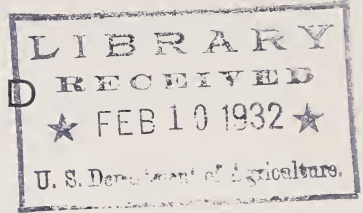 LIBRARY
D RECEIVED
★ FEB 10 1932 ★
U. S. Department of Agriculture.